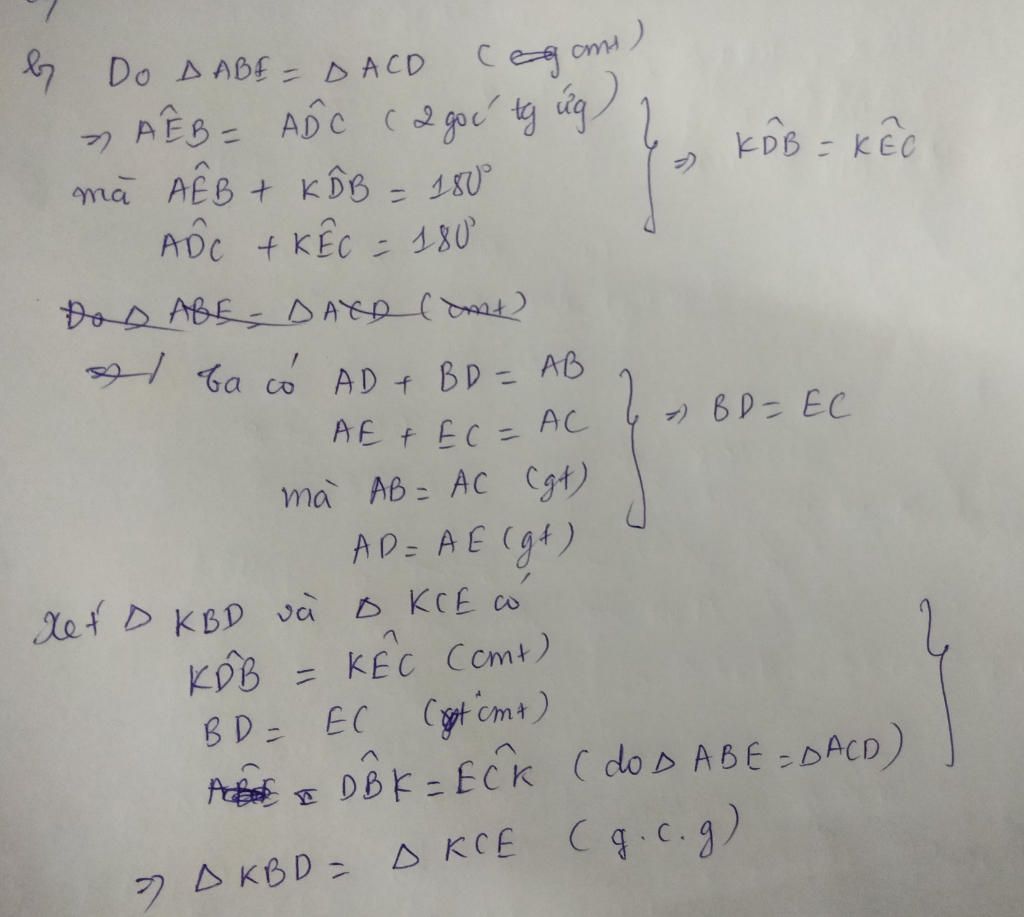 b, Do Δ ABE = Δ ACD (cmt)
=> AÊB = AD̂C (2 góc tg ứg)
mà AÊB + KD̂B = 180°
AD̂C + KÊC = 180°
=> KD̂B = KÊC
Do Δ ABE = Δ ACD (cmt)
=> Ta có AD + BD = AB
AE + EC = AC
mà AB = AC (gt)
AD = AE (gt)
=> BD = EC
Xét Δ KBD và Δ KCE có
KD̂B = KÊC (cmt)
BD = EC (cmt)
DB̂K = EĈK (do Δ ABE = Δ ACD)
=> Δ KBD = Δ KCE (g.c.g)